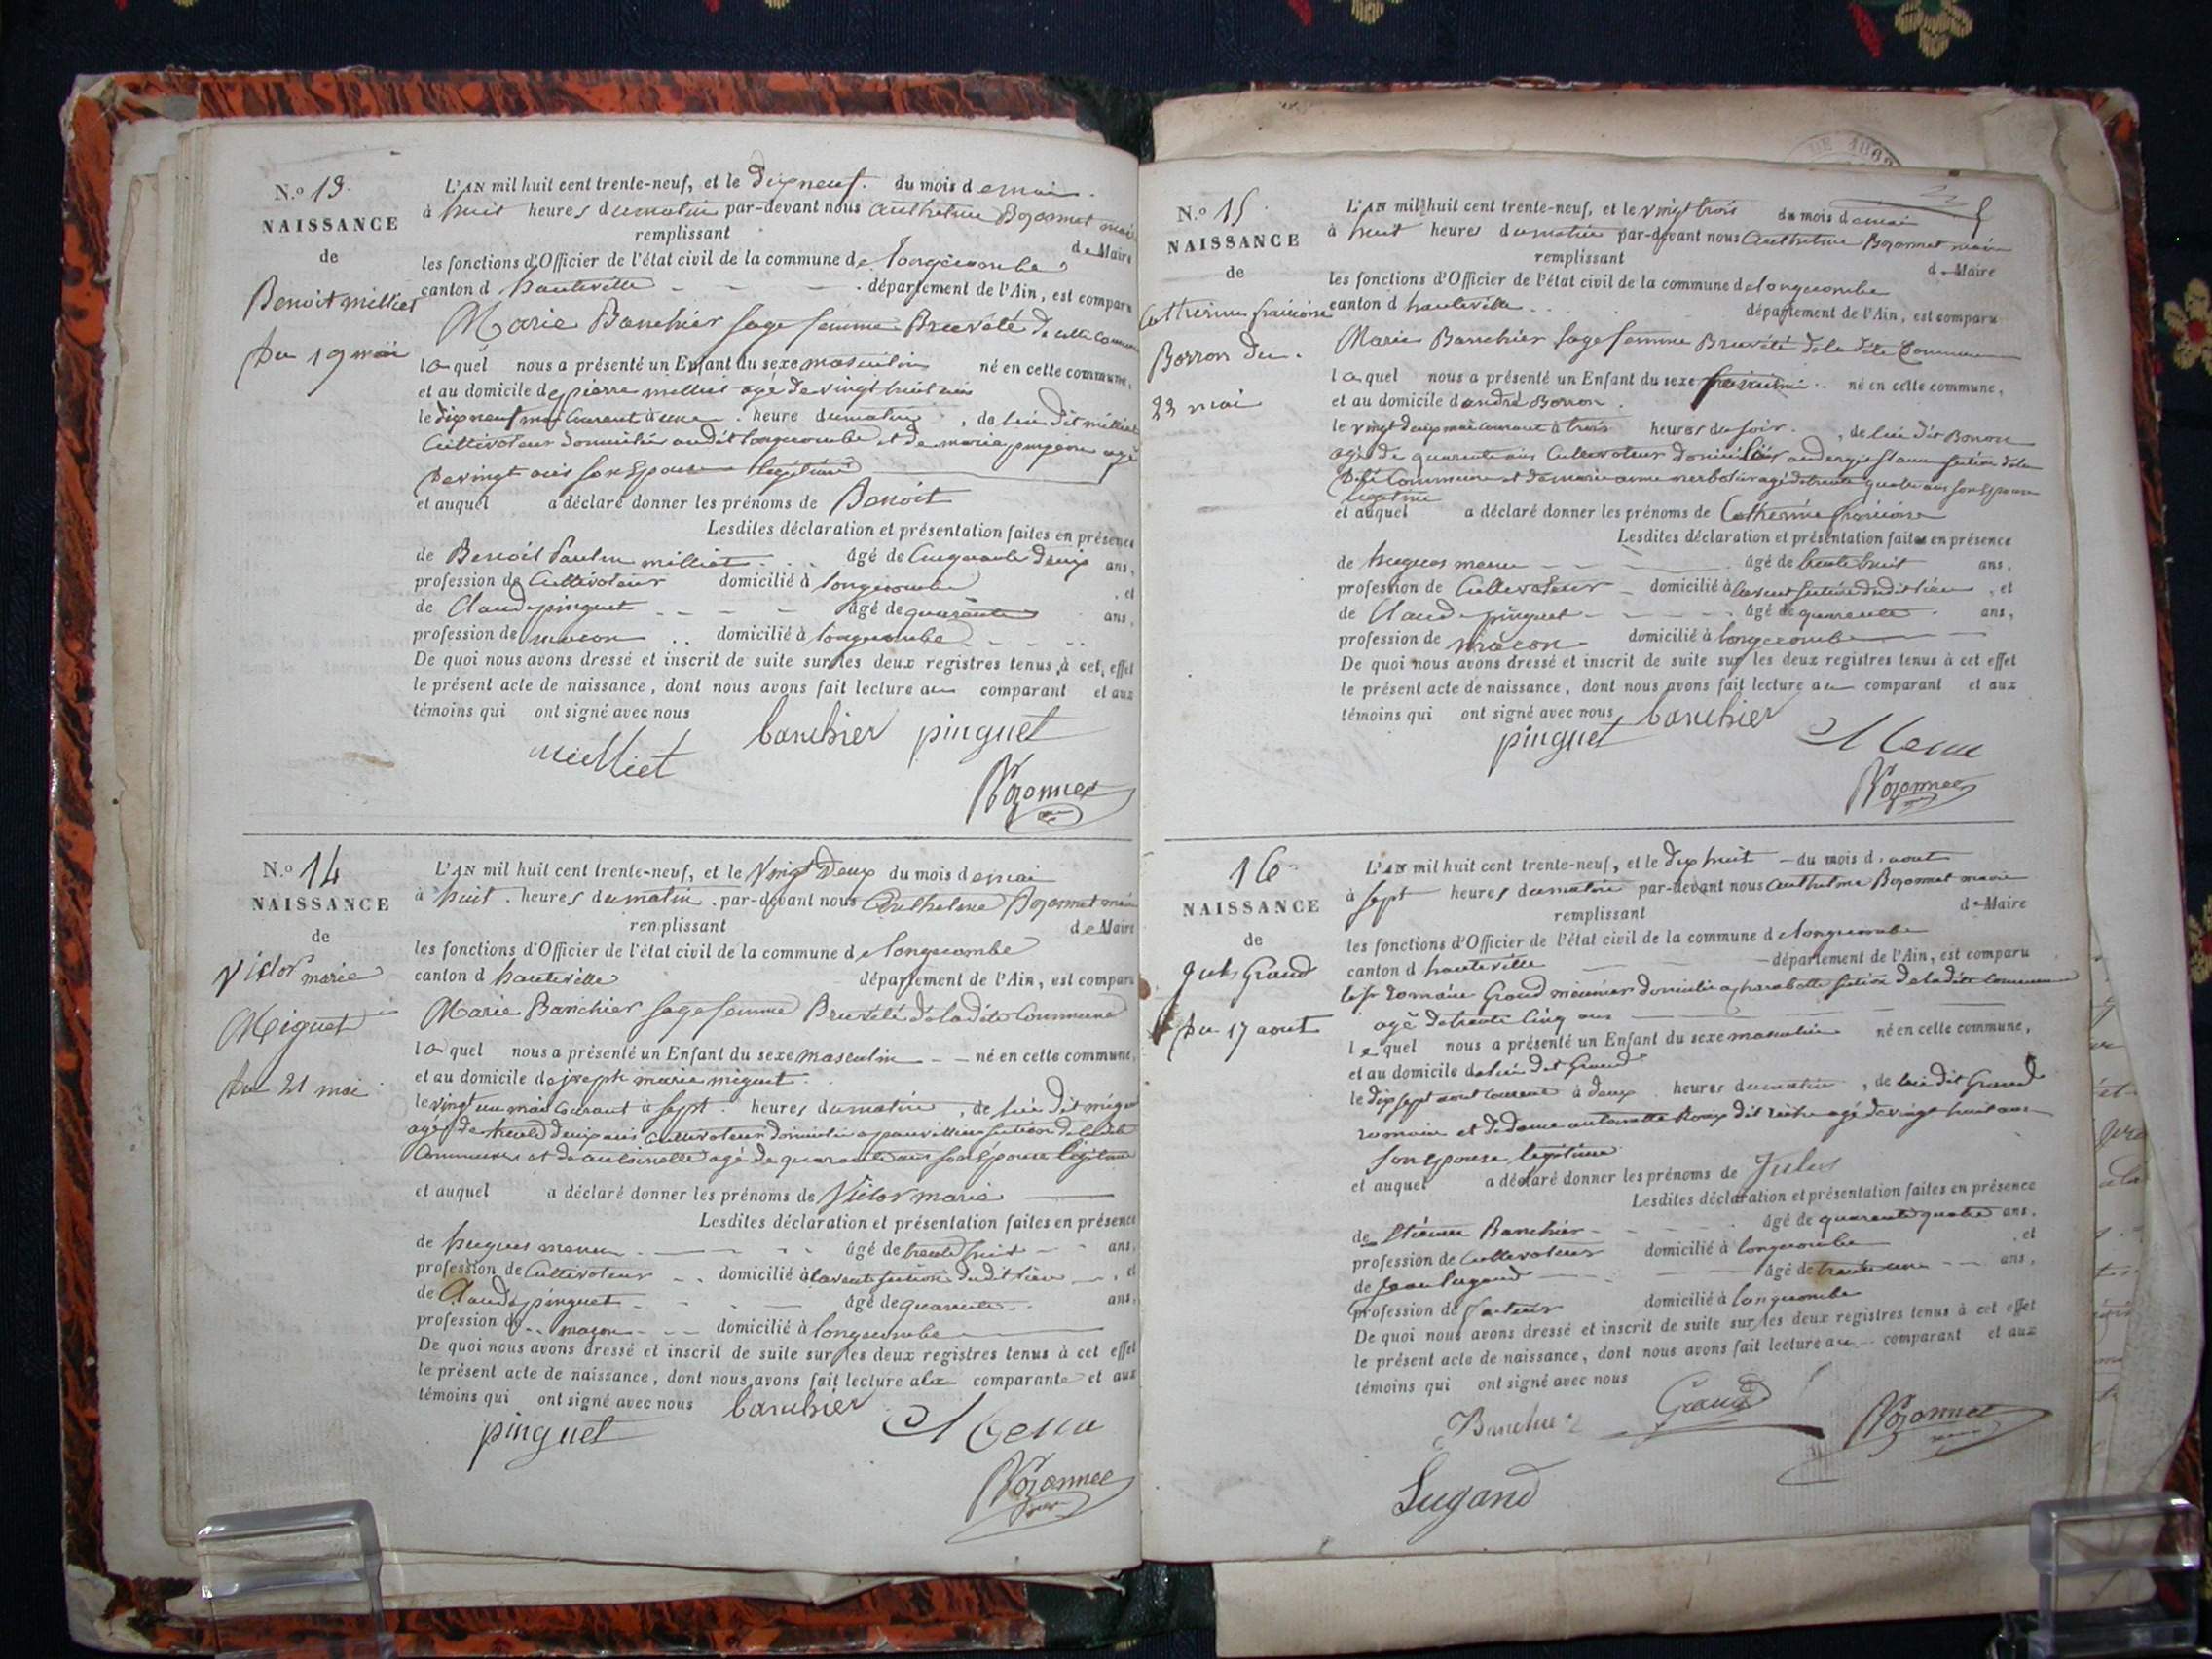 N.º 13.
NAISSANCE
de
Benoit milliet
Du 19 mai
L'AN mil huit cent trente-neuf, et le dixneuf. du mois de mai
à huit heures du matin par-devant nous Anthelme Bozonnet maire
remplissant de Maire
les fonctions d'Officier de l'état civil de la commune de longecombe
canton d hauteville département de l'Ain, est comparu
Marie Banchier sage femme Brevété de cette Commune
laquel nous a présenté un Enfant du sexe masculin né en cette commune,
et au domicile de pierre milliet agé de vingt huit ans
le dixneuf mai Courant à une heure du matin, de lui dit milliet
Cultivateur domicilié audit longecombe et de marie pingeon agé
de vingt ans son Epouse légitime
et auquel a déclaré donner les prénoms de Benoit
Lesdites déclaration et présentation faites en présence
de Benoit Paulin milliet âgé de Cinquante deux ans,
profession de Cultivateur domicilié à longecombe, et
de Claude pinguet âgé de quarante ans,
profession de macon domicilié à longecombe
De quoi nous avons dressé et inscrit de suite sur les deux registres tenus à cet effet
le présent acte de naissance, dont nous avons fait lecture au comparant et aux
témoins qui ont signé avec nous
banchier pinguet
milliet
Bozonnet
N.º 14
NAISSANCE
de
Victor marie
Miguet
Du 21 mai
L'AN mil huit cent trente-neuf, et le Vingt Deux du mois de mai
à huit heures du matin par-devant nous Anthelme Bozonnet maire
remplissant de Maire
les fonctions d'Officier de l'état civil de la commune de longecombe
canton d hauteville département de l'Ain, est comparu
Marie Banchier sage femme Brevété de la dite Commune
laquel nous a présenté un Enfant du sexe masculin né en cette commune,
et au domicile de joseph marie miguet
le vingt un mai Courant à sept heures du matin, de lui dit miguet
agé de trente deux ans Cultivateur domicilié a section de la dite
Commune et de antoinette agé de quarante ans son Epouse légitime
et auquel a déclaré donner les prénoms de Victor marie
Lesdites déclaration et présentation faites en présence
de hugues menu âgé de trente huit ans,
profession de Cultivateur domicilié à section dudit lieu, et
de Claude pinguet âgé de quarante ans,
profession de macon domicilié à longecombe
De quoi nous avons dressé et inscrit de suite sur les deux registres tenus à cet effet
le présent acte de naissance, dont nous avons fait lecture a la comparante et aux
témoins qui ont signé avec nous banchier
pinguet Menu
Bozonnet
N.º 15
NAISSANCE
de
Catherine francoise
Borron du
22 mai
L'AN mil huit cent trente-neuf, et le vingt trois du mois de mai
à huit heures du matin par-devant nous Anthelme Bozonnet maire
remplissant de Maire
les fonctions d'Officier de l'état civil de la commune de longecombe
canton d hauteville département de l'Ain, est comparu
Marie Banchier sage femme Brevété de la dite Commune
laquel nous a présenté un Enfant du sexe feminin né en cette commune,
et au domicile d andré Borron
le vingt deux mai courant à trois heures du soir, de lui dit Borron
agé de quarante ans Cultivateur domicilié section de la
dite Commune et de marie anne agé de trente quatre ans son Epouse
légitime
et auquel a déclaré donner les prénoms de Catherine francoise
Lesdites déclaration et présentation faites en présence
de hugues menu âgé de trente huit ans,
profession de Cultivateur domicilié à section dudit lieu, et
de Claude pinguet âgé de quarante ans,
profession de macon domicilié à longecombe
De quoi nous avons dressé et inscrit de suite sur les deux registres tenus à cet effet
le présent acte de naissance, dont nous avons fait lecture au comparant et aux
témoins qui ont signé avec nous banchier
pinguet Menu
Bozonnet
16
NAISSANCE
de
Jules Grand
Du 17 aout
L'AN mil huit cent trente-neuf, et le dix huit du mois d aout
à sept heures du matin par-devant nous Anthelme Bozonnet maire
remplissant de Maire
les fonctions d'Officier de l'état civil de la commune de longecombe
canton d hauteville département de l'Ain, est comparu
le sr Romain Grand meunier domicilié a charabotte section de la dite Commune
agé de trente Cinq ans
lequel nous a présenté un Enfant du sexe masculin né en cette commune,
et au domicile de lui dit Grand
le dix sept aout courant à deux heures du matin, de lui dit Grand
romain et de dame antoinette Roux dit agé de vingt huit ans
son Epouse légitime
et auquel a déclaré donner les prénoms de Jules
Lesdites déclaration et présentation faites en présence
de Etienne Banchier âgé de quarante quatre ans,
profession de Cultivateur domicilié à longecombe, et
de Jean lugand âgé de trente un ans,
profession de facteur domicilié à longecombe
De quoi nous avons dressé et inscrit de suite sur les deux registres tenus à cet effet
le présent acte de naissance, dont nous avons fait lecture au comparant et aux
témoins qui ont signé avec nous
Banchier Grand Bozonnet
Lugand